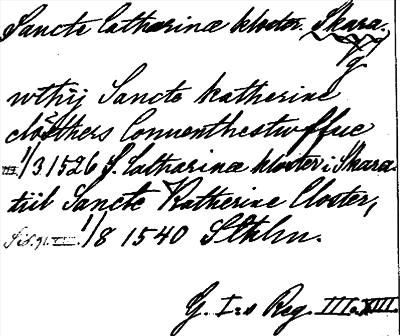 Sancte Catharinæ kloster. Skara.
Vg
wthij Sancte Katherine
closthers Conuenthestwffue
III. 1/3 1526 S. Catharinæ kloster i Skara.
tiil Sancte Katherine Closter,
1/8 1540 Sthlm.
G. I:s Reg. III o. XIII.